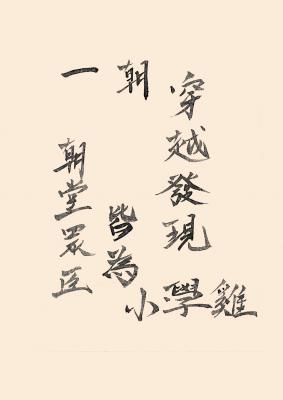 一朝
穿越發現
朝堂眾臣
皆為
小學雞